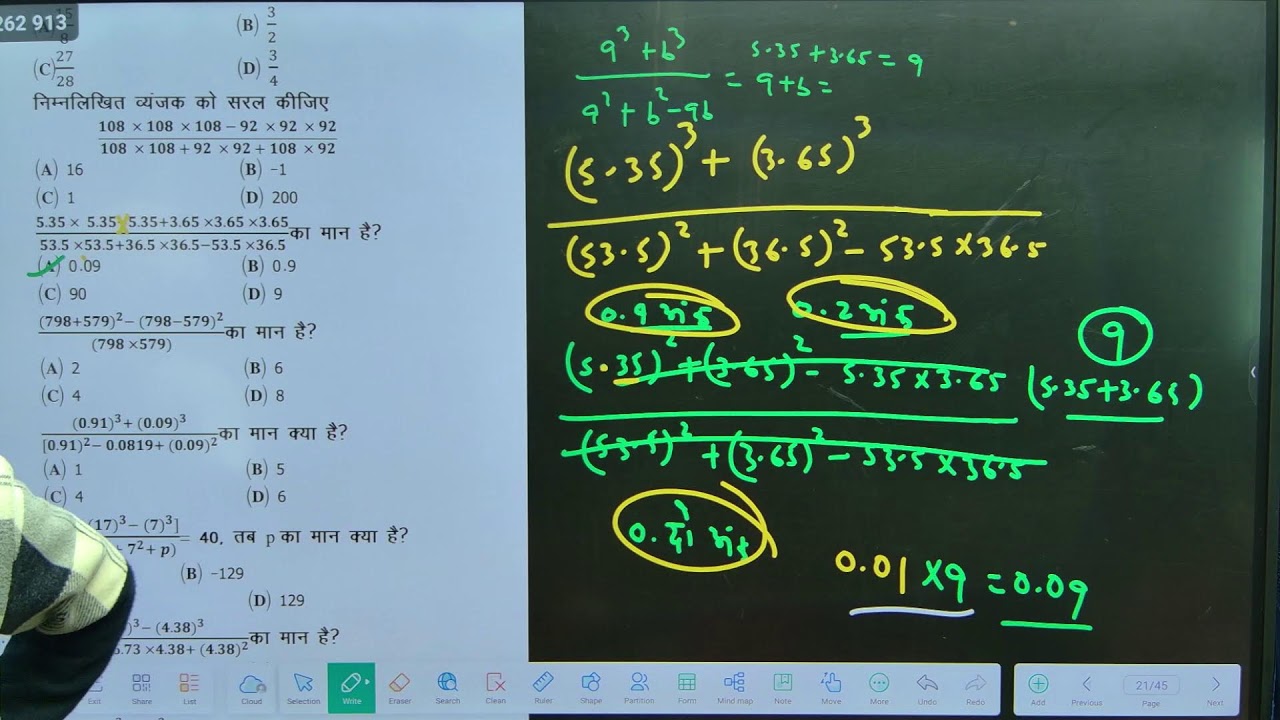 262 913
15/8
(B) 3/2
(C) 27/28
(D) 3/4
निम्नलिखित व्यंजक को सरल कीजिए
108 × 108 × 108 − 92 × 92 × 92
108 × 108 + 92 × 92 + 108 × 92
(A) 16
(B) -1
(C) 1
(D) 200
5.35 × 5.35 × 5.35+3.65 ×3.65 ×3.65
53.5 ×53.5+36.5 ×36.5−53.5 ×36.5
का मान है?
(A) 0.09
(B) 0.9
(C) 90
(D) 9
(798+579)²− (798−579)²
(798 ×579)
का मान है?
(A) 2
(B) 6
(C) 4
(D) 8
(0.91)³ + (0.09)³
[0.91)²− 0.0819+ (0.09)²
का मान क्या है?
(A) 1
(B) 5
(C) 4
(D) 6
(17)³− (7)³]
+ 7² + p)
= 40, तब p का मान क्या है?
(B) -129
(D) 129
)³− (4.38)³
5.73 ×4.38+ (4.38)²
का मान है?
a³ + b³
a² + b² − ab
= a+b =
5.35 + 3.65 = 9
(5.35)³ + (3.65)³
(53.5)² + (36.5)² − 53.5 × 36.5
(5.35)² + (3.65)² − 5.35 × 3.65 (5.35+3.65)
9
(53.5)² + (3.65)² − 53.5 × 36.5
0.01 × 9 = 0.09
Exit
Share
List
Cloud
Selection
Write
Eraser
Search
Clean
Ruler
Shape
Partition
Form
Mind map
Note
Move
More
Undo
Redo
Add
Previous
21/45
Page
Next